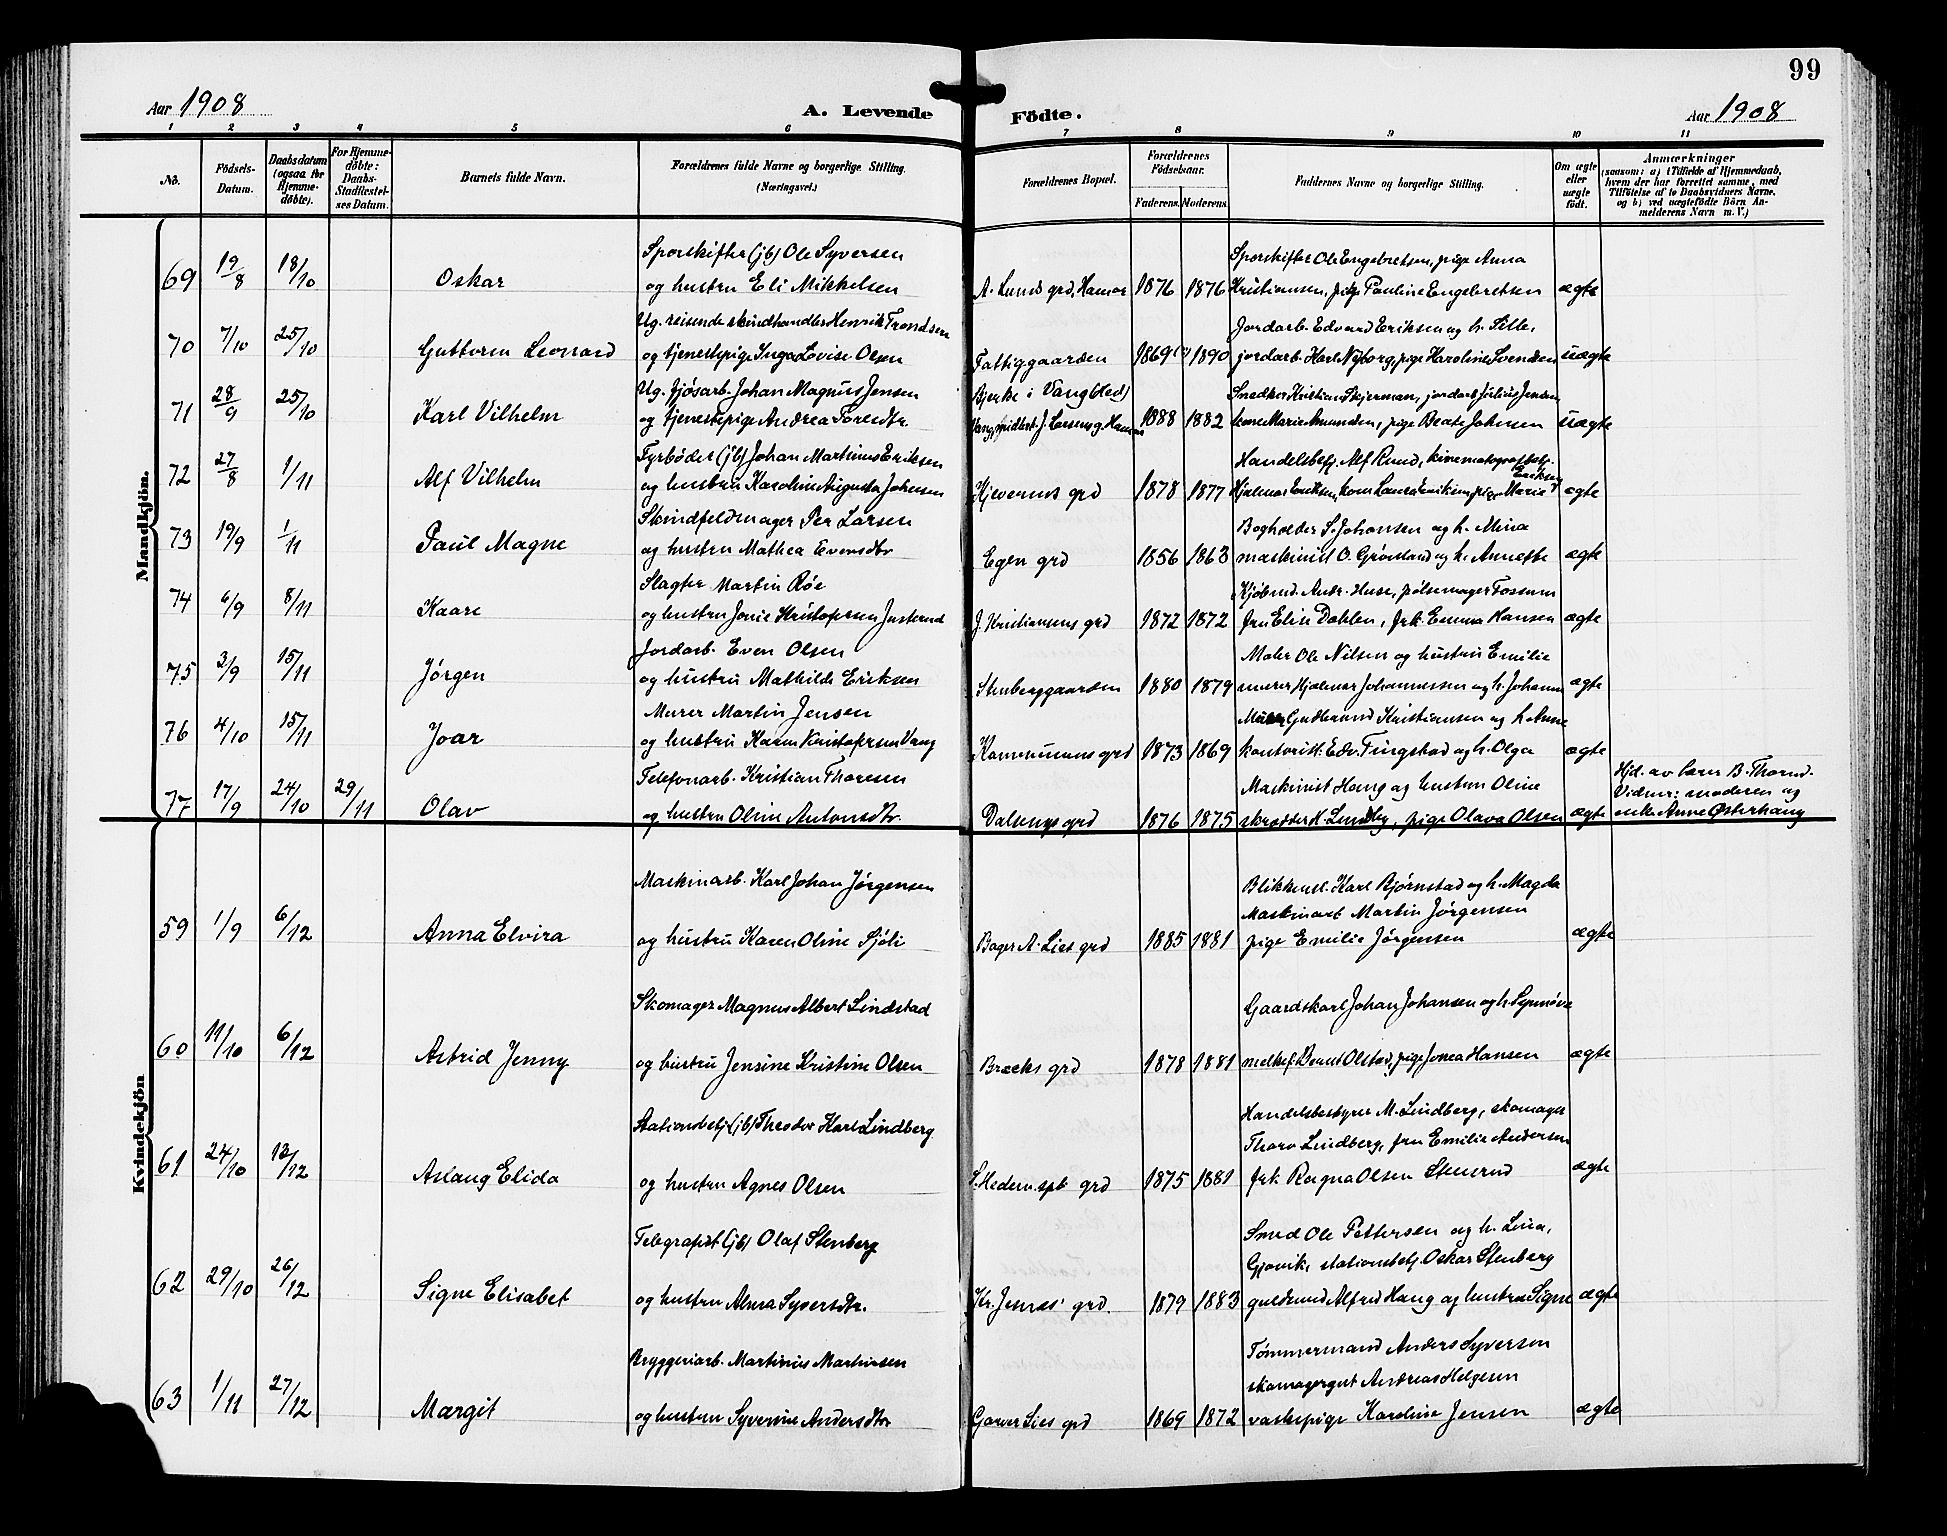 99
Aar 1908
A. Levende Födte.
Aar 1908
1 2 3 4 5 6 7 8 9 10 11
No.
Födsels-Datum.
Daabsdatum (ogsaa for Hjemmedöbte).
For Hjemmedöbte: Daabs-Stadfæstelses Datum.
Barnets fulde Navn.
Forældrenes fulde Navne og borgerlige Stilling.
(Næringsvei.)
Forældrenes Bopæl.
Forældrenes Födselsaar.
Faderens. Moderens.
Faddernes Navne og borgerlige Stilling.
Om ægte eller uægte födt.
Anmærkninger
(saasom: a) i Tilfælde af Hjemmedaab, hvem der har forrettet samme, med Tilföielse af to Daabsvidners Navne, og b) ved uægtefödte Börn Anmelderens Navn m. V.)
Mandkjön.
Sporskifter (jb) Ole Syversen
Sporskifter Ole Engebretsen, pige Anna
69 19/8 18/10 Oskar og hustru Eli Mikkelsen A. Lunds grd, Hamar 1876 1876 Kristiansen, pige Pauline Engebretsen ægte
Ug. reisende skindhandler Henrik Trondsen
Jordarb. Edvard Eriksen og h. Sille,
70 7/10 25/10 Guttorm Leonard og tjenestepige Inga Lovise Olsen Fattiggaarden 1869 1890 jordarb. Karl Nyborg, pige Karoline Svendsen uægte
Ug. fjøsarb. Johan Magnus Jensen Bjerke i Vang
Snedker Kristian Skjerman, jordarb. Julius Jensen,
71 28/9 25/10 Karl Vilhelm og tjenestepige Andrea Toresdtr. 1888 1882 kone Marie Amundsen, pige Beate Johnsen uægte
Fyrbøder (jb) Johan Martinius Eriksen
Handelsbetj. Alf Ruud, kinematografbetj.
72 27/8 1/11 Alf Vilhelm og hustru Karoline Augusta Johnsen grd 1878 1877 Hjalmar Eriksen, kone Laura Eriksen, pige Marie Eriksen ægte
Skindfeldmager Per Larsen
Bogholder S. Johansen og h. Mina
73 19/9 1/11 Paul Magne og hustru Mathea Evensdtr Egen grd 1856 1863 maskinist O. Grøsland og h. Annette ægte
Slagter Martin Røe
Kjøbmd. Andr. Huse, pølsemager Fossum
74 6/9 8/11 Kaare og hustru Jonie Kristofersen Justerud J. Kristiansens grd 1872 1872 fru Elise Dahlen, frk. Emma Hansen ægte
Jordarb. Even Olsen
Maler Ole Nilsen og hustru Emilie
75 3/9 15/11 Jørgen og hustru Mathilde Eriksen Stenberggaarden 1880 1879 murer Hjalmar Johannessen og h. Johanne ægte
Murer Martin Jensen
Murer Gudbrand Kristiansen og h. Anne
76 4/10 15/11 Joar og hustru Karen Kristofersen Vang Kommunens grd 1873 1869 kontorist Edv. Tingstad og h. Olga ægte
Telefonarb. Kristian Thoresen
Maskinist Haug og hustru Oline
Hjd. av lærer B. Thorud.
Vidner: moderen og
77 17/9 24/10 29/11 Olav og hustru Oline Antonsdtr. Dalsengs grd 1876 1875 skrædder K. Lundby, pige Olava Olsen ægte enke Anne Østerhaug
Kvindekjön
Maskinarb. Karl Johan Jørgensen
Blikkensl. Karl Bjørnstad og h. Magda
Maskinarb. Martin Jørgensen
59 1/9 6/12 Anna Elvira og hustru Karen Oline Sjøli Bager A. Lies grd 1885 1881 pige Emilie Jørgensen ægte
Skomager Magnus Albert Lindstad
Gaardskarl Johan Johansen og h. Synnøve
60 11/10 6/12 Astrid Jenny og hustru Jensine Kristine Olsen Brecks grd 1878 1881 Olstad, pige Jonea Hansen ægte
Stationsbetj (jb) Theodor Karl Lindberg
Handelsbestyrer M. Lindberg, skomager
Thorv. Lindberg, fru Emilie Andersen
61 24/10 13/12 Aslaug Elida og hustru Agnes Olsen S. Hedem. spb grd 1875 1881 frk Ragna Olsen Stenerud ægte
Telegrafist (jb) Olaf Stenberg
Smed Ole Pettersen og h. Lina,
Gjøvik, stationsbetj. Oskar Stenberg
62 29/10 26/12 Signe Elisabet og hustru Alma Syversdtr. Kr. Jensens grd. 1879 1883 guldsmed Alfred Haug og hustru Signe ægte
Bryggeriarb. Martinius Martinsen
Tømmermand Anders Syversen
skomagergut Andreas Helgesen
63 1/11 27/12 Margit og hustru Syverine Andersdtr Garver Lies grd 1869 1872 vaskepige Karoline Jensen ægte